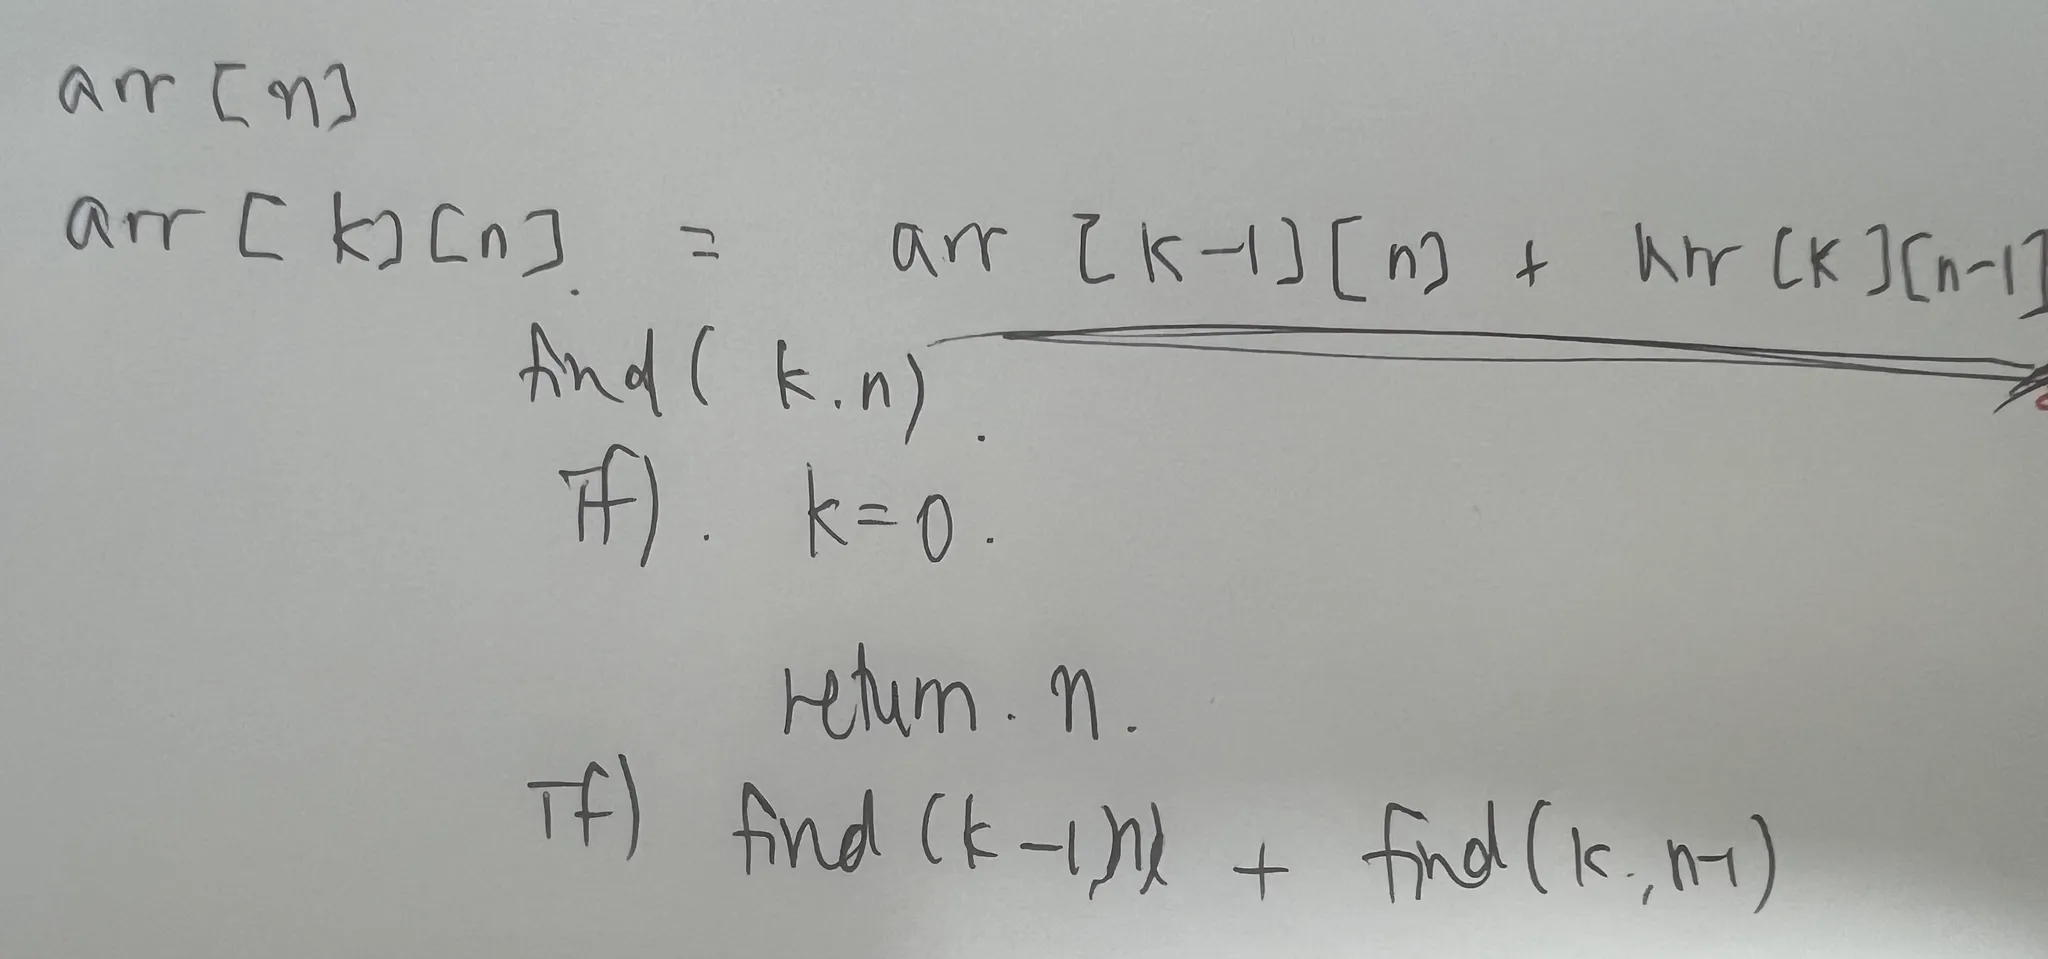 arr [n]
arr [k][n] = arr [k-1][n] + arr [k][n-1]
find( k.n)
If). k=0.
return. n.
If) find (k-1,n) + find(k.,n-1)